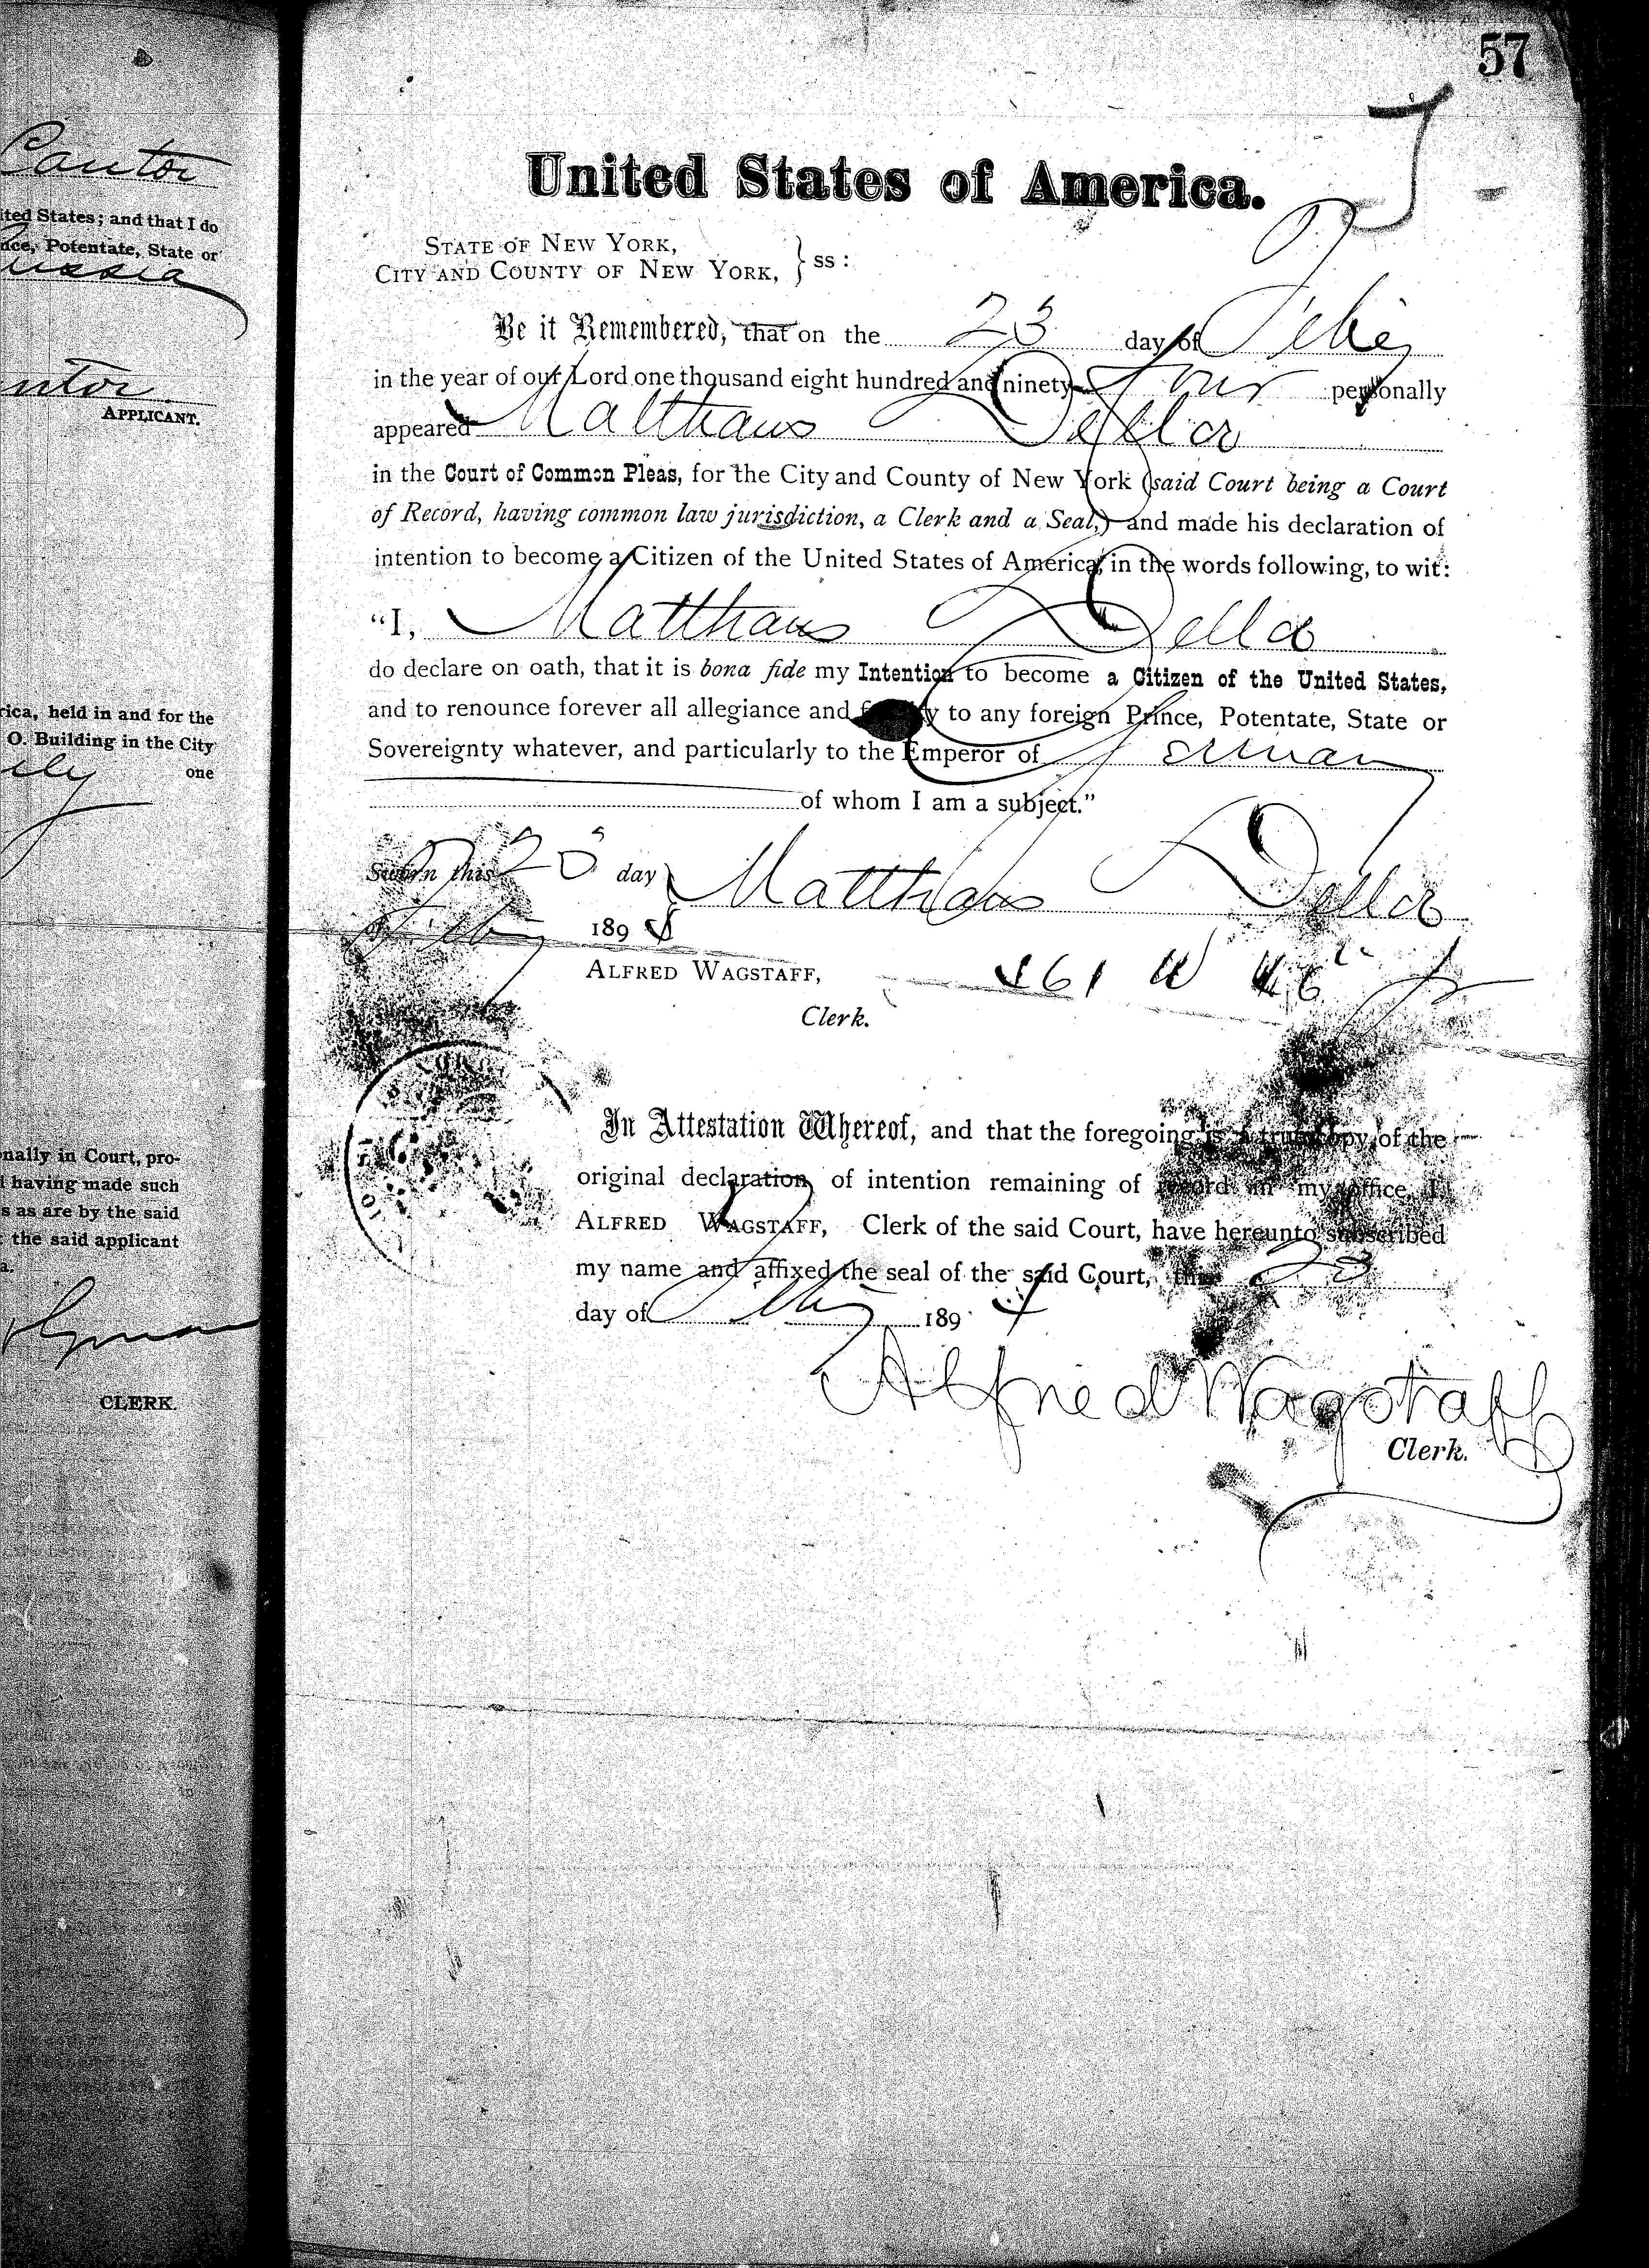 Cantor
ited States; and that I do
nce, Potentate, State or
ussia
ntor.
APPLICANT.
rica, held in and for the
O. Building in the City
one
nally in Court, pro-
l having made such
s as are by the said
the said applicant
a.
CLERK.
57
United States of America.
STATE OF NEW YORK,
CITY AND COUNTY OF NEW YORK, } ss:
Be it Remembered, that on the 23 day of Feby
in the year of our Lord one thousand eight hundred and ninety- four personally
appeared Matthaus Della
in the Court of Common Pleas, for the City and County of New York (said Court being a Court
of Record, having common law jurisdiction, a Clerk and a Seal,) and made his declaration of
intention to become a Citizen of the United States of America, in the words following, to wit:
"I, Matthaus Della
do declare on oath, that it is bona fide my Intention to become a Citizen of the United States,
and to renounce forever all allegiance and to any foreign Prince, Potentate, State or
Sovereignty whatever, and particularly to the Emperor of Germany
of whom I am a subject."
Sworn this 23 day } Matthaus Della
Feby 1894
ALFRED WAGSTAFF, 461 W 46
Clerk.
In Attestation Whereof, and that the foregoing is a true copy of the
original declaration of intention remaining of record in my office, I,
ALFRED WAGSTAFF, Clerk of the said Court, have hereunto subscribed
my name and affixed the seal of the said Court, this 23
day of Feby 1894
Alfred Wagstaff
Clerk.